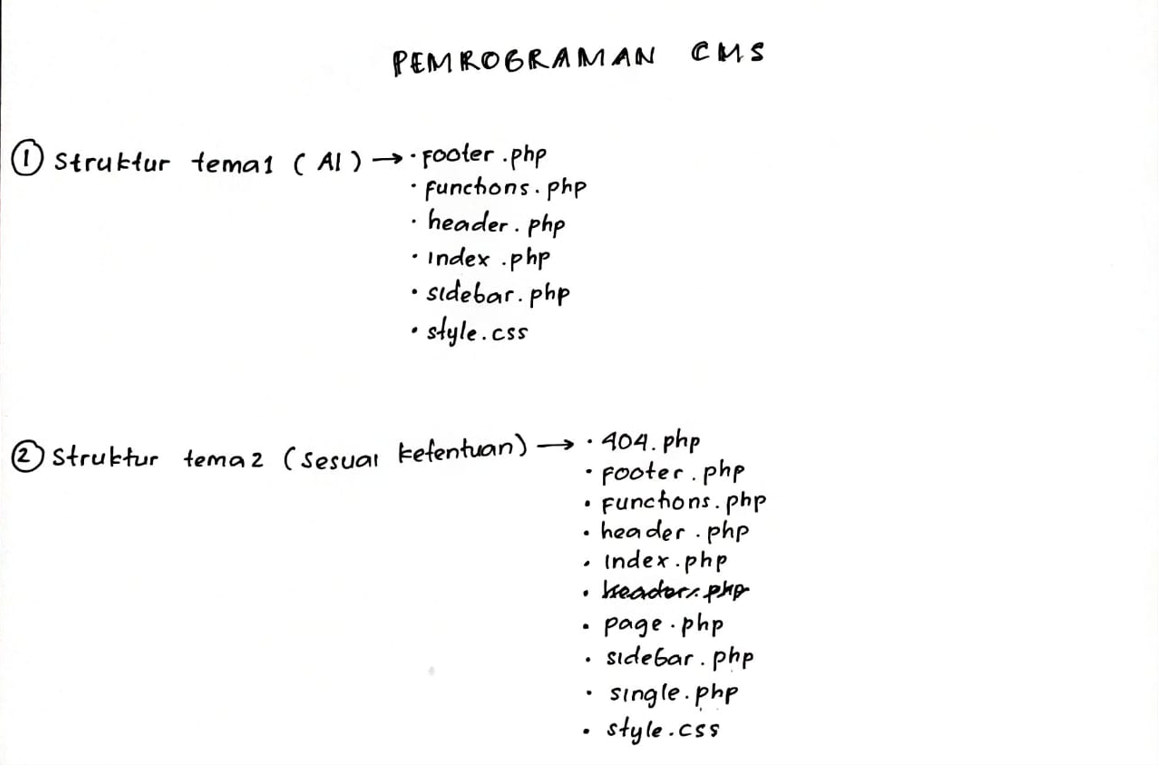 PEMROGRAMAN CMS
① Struktur tema1 (AI) → · footer.php
· functions.php
· header.php
· index.php
· sidebar.php
· style.css
② Struktur tema2 (Sesuai ketentuan) → · 404.php
· footer.php
· functions.php
· header.php
· index.php
· header.php
· page.php
· sidebar.php
· single.php
· style.css